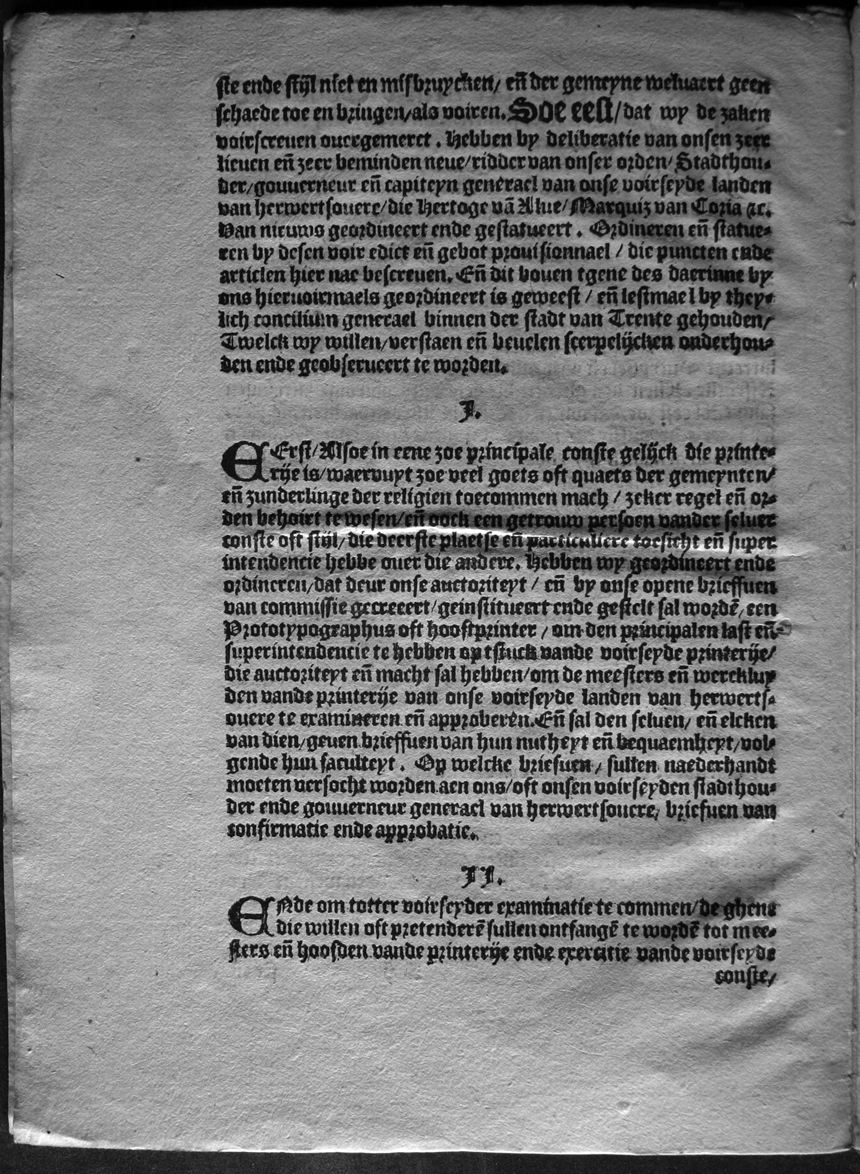 ste ende stijl niet en misbruycken/ en̄ der gemeyne weluaert geen
schaede toe en bringen/als voiren. Soe eest/dat wy de zaken
voirscreuen ouergemerct. Hebben by deliberatie van onsen zeer
lieuen en̄ zeer beminden neue/ridder van onser orden/Stadthou-
der/gouuerneur en̄ capiteyn generael van onse voirseyde landen
van herwertsouere/die Hertoge vā Alue/Marquiz van Coria ꝛc.
Van nieuws geordineert ende gestatueert. Ordineren en̄ statue-
ren by desen voir edict en̄ gebot prouisionnael/die puncten ende
articlen hier nae bescreuen. En̄ dit bouen tgene des daerinne by
ons hieruoirmaels geordineert is geweest/ en̄ lestmael by they-
lich concilium generael binnen der stadt van Trente gehouden/
Twelck wy willen/verstaen en̄ beuelen scerpelijcken onderhou-
den ende geobserueert te worden.
I.
EErst/Alsoe in eene zoe principale conste gelijck die printe-
rije is/waervuyt zoe veel goets oft quaets der gemeynten/
en̄ zunderlinge der religien toecommen mach/ zeker regel en̄ or-
den behoirt te wesen/en̄ oock een getrouw persoen vander seluer
conste oft stijl/die deerste plaetse en̄ particuliere toesicht en̄ super
intendencie hebbe ouer die andere. Hebben wy geordineert ende
ordineren/dat deur onse auctoriteyt/ en̄ by onse opene brieffuen
van commissie gecreeert/geinstitueert ende gestelt sal wordē/een
Prototypographus oft hooftprinter/om den principalen last en̄
superintendencie te hebben opt stuck vande voirseyde printerije/
die auctoriteyt en̄ macht sal hebben/om de meesters en̄ werckluy
den vande printerije van onse voirseyde landen van herwerts-
ouere te examineren en̄ approberen. En̄ sal den seluen/ en̄ elcken
van dien/geuen brieffuen van hun nutheyt en̄ bequaemheyt/vol-
gende hun faculteyt. Op welcke briefuen/ sullen naederhandt
moeten versocht worden aen ons/oft onsen voirseyden stadthou-
der ende gouuerneur generael van herwertsouere/ briefuen van
confirmatie ende approbatie.
II.
ENde om totter voirseyder examinatie te commen/de ghene
die willen oft pretenderē sullen ontfangē te wordē tot mee-
sters en̄ hoofden vande printerije ende exercitie vande voirseyde
conste/